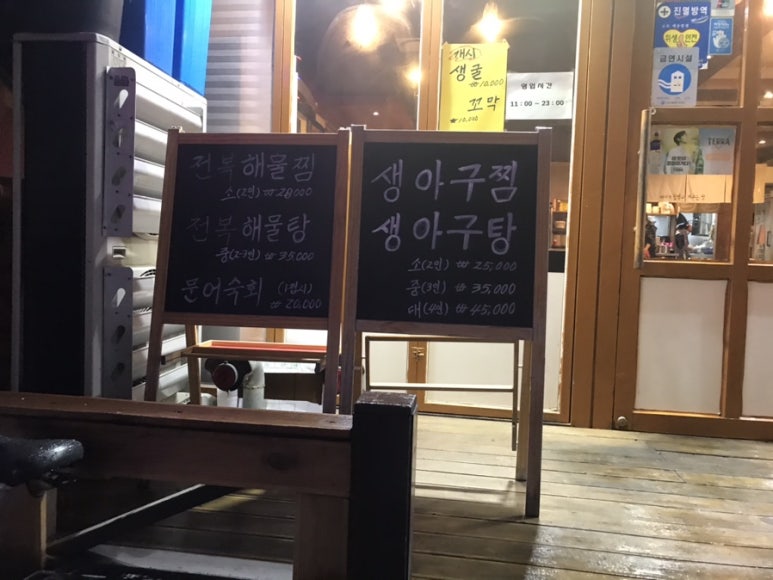 전복해물찜
소(2인) ₩28,000
전복해물탕
중(2-3인) ₩35,000
문어숙회 (1접시)
₩20,000
생아구찜
생아구탕
소(2인) ₩25,000
중(3인) ₩35,000
대(4인) ₩45,000
개시
생굴
₩10,000
꼬막
₩10,000
영업시간
11:00 ~ 23:00
금연시설
TERRA